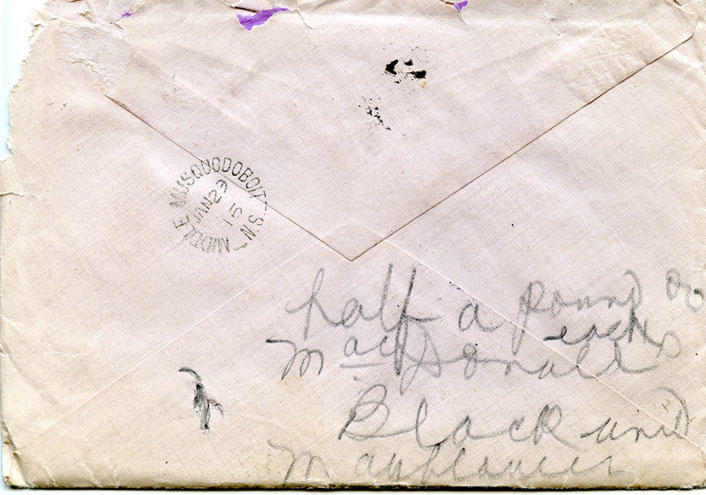 MIDDLE MUSQUODOBOIT N.S.
JAN 23
15
half a pound
each
MacDonald
Black and